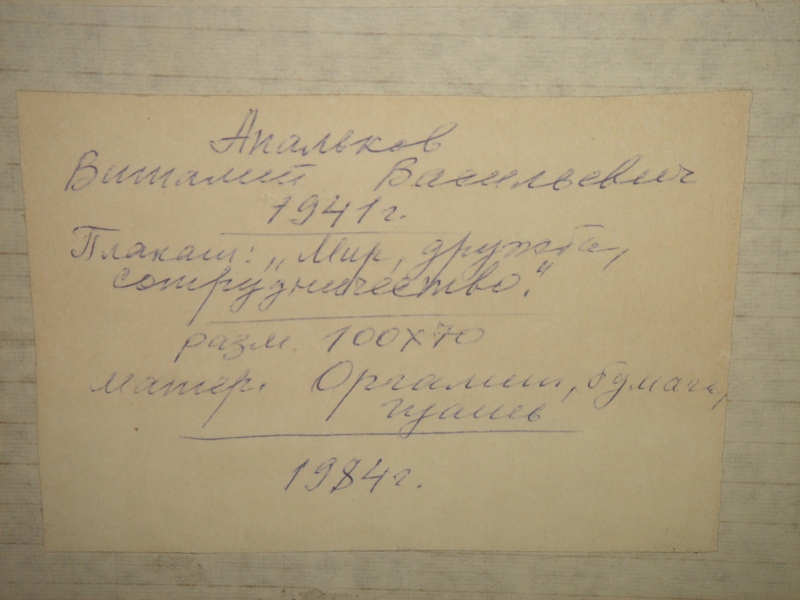 Апальков
Виталий Васильевич
1941 г.
Плакат: „Мир, дружба,
сотрудничество."
разм. 100х70
матер. Оргалит, бумага,
гуашь
1984 г.